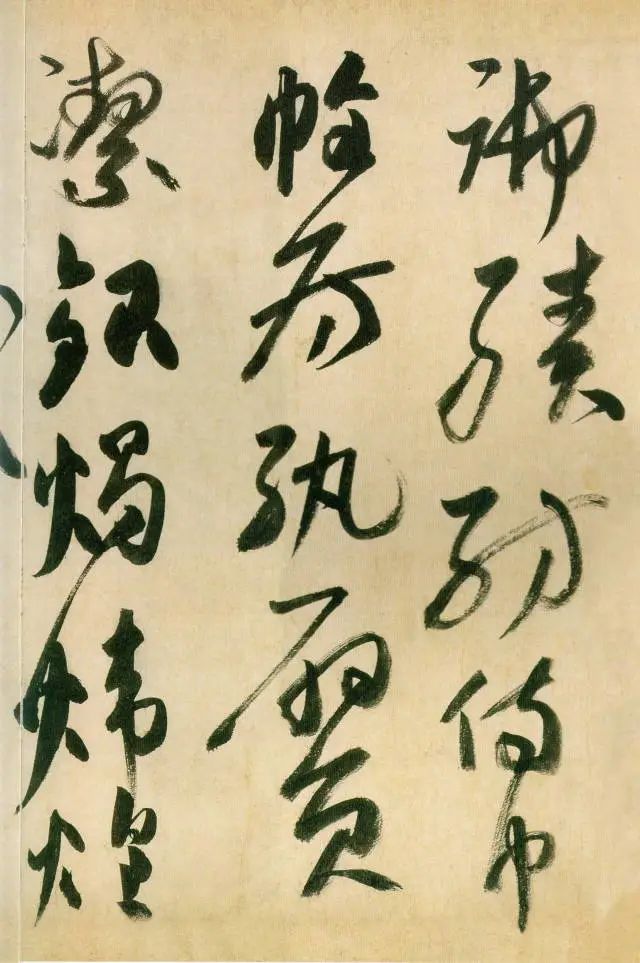 御績紡侍巾
帷房紈扇員
潔銀燭煒煌